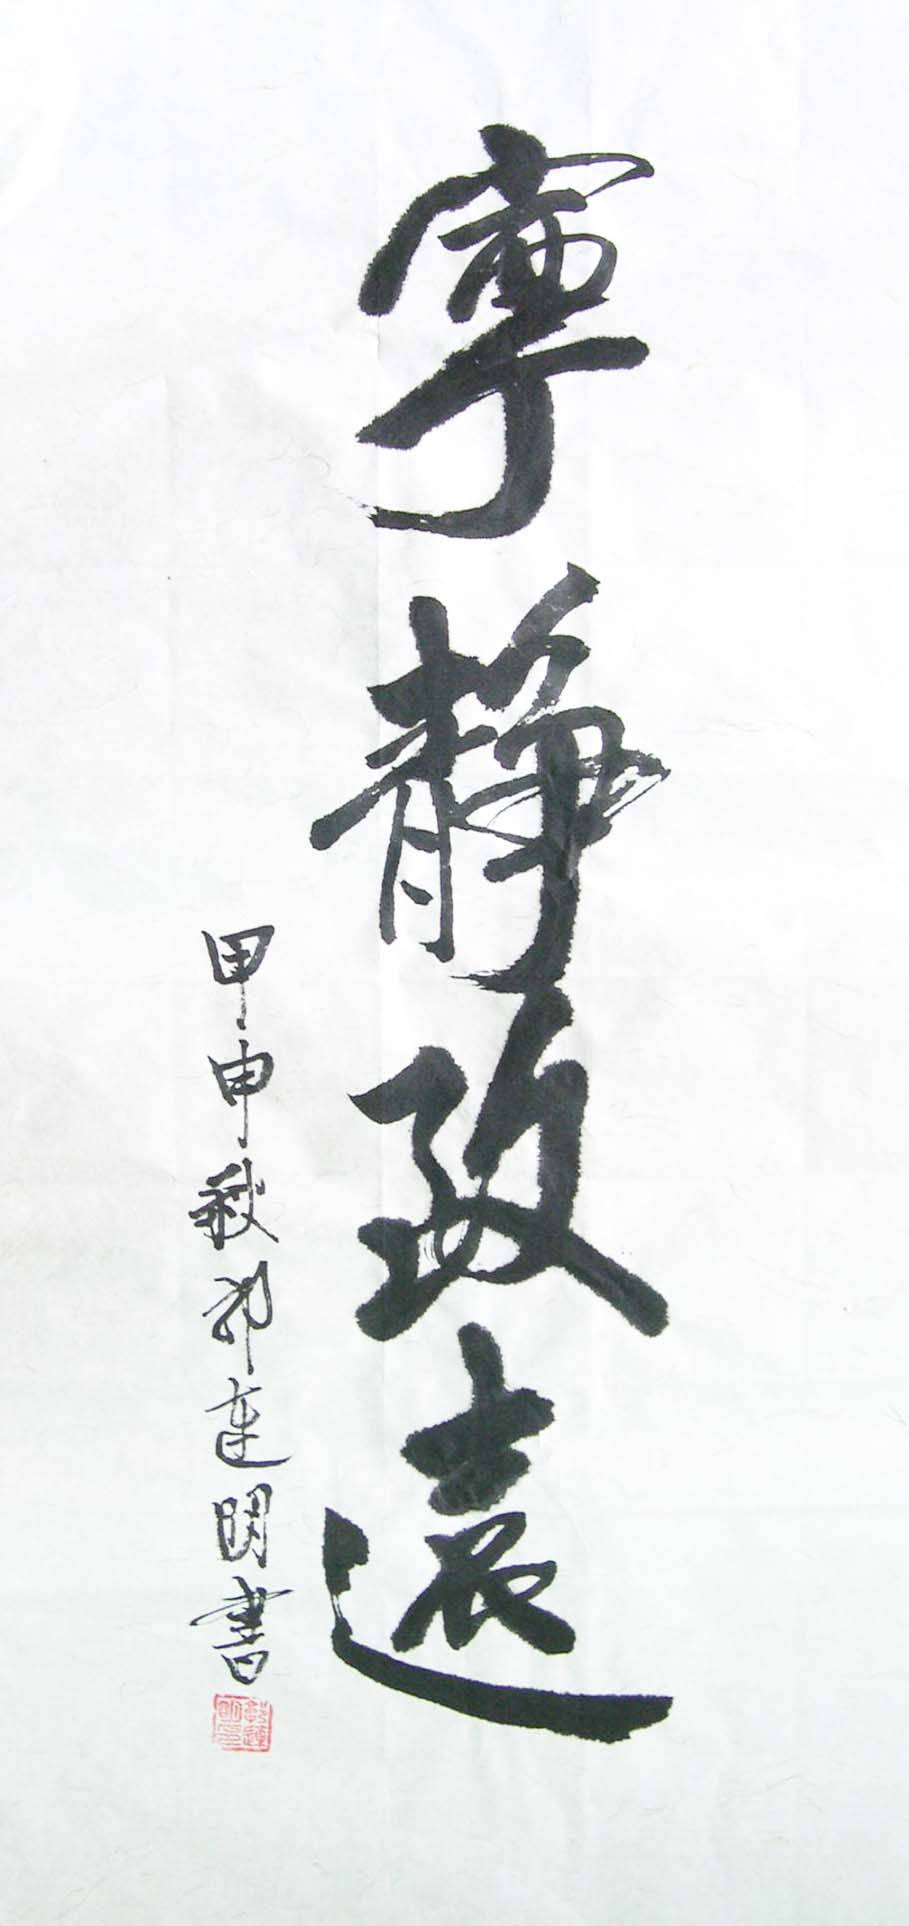 寧靜致遠
甲申秋邵達明書